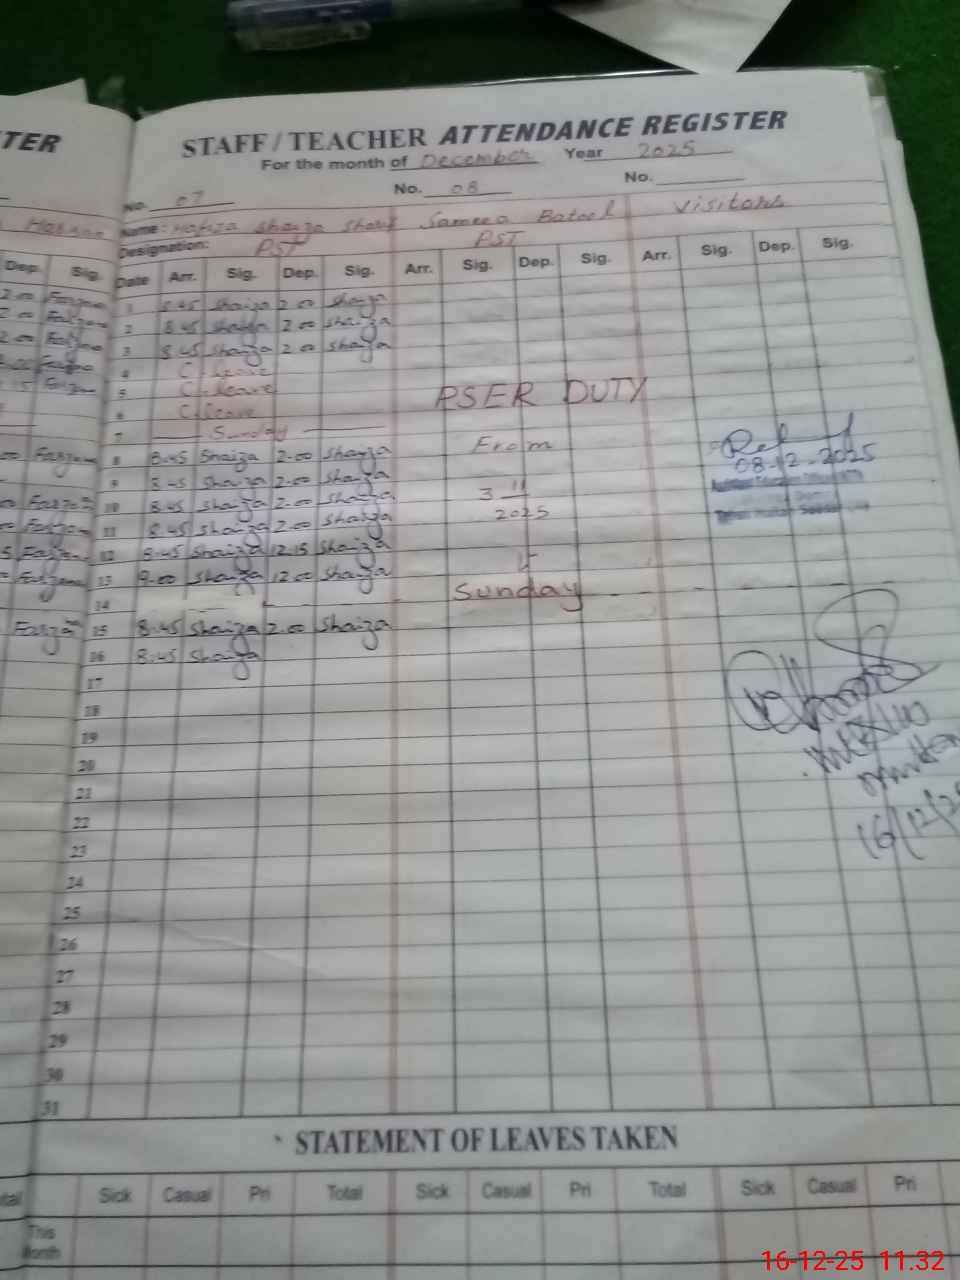 TER
STAFF / TEACHER ATTENDANCE REGISTER
For the month of December Year 2025
No. 07 No. 08 No.
Name: Hafiza Shaiza Samra Batool Visitors
Designation: PST PST
Dep. Sig. Date Arr. Sig. Dep. Sig. Arr. Sig. Dep. Sig. Arr. Sig. Dep. Sig.
2.00 1 8.45 Shaiza 2.00 Shaiza
2.00 2 8.45 Shaiza 2.00 Shaiza
2.00 3 8.45 Shaiza 2.00 Shaiza
4 C. Leave
5 C. Leave
6 C. Leave
PSER DUTY
7 Sunday
8 8.45 Shaiza 2.00 Shaiza From
08-12-2025
9 8.45 Shaiza 2.00 Shaiza
10 8.45 Shaiza 2.00 Shaiza 3 11
11 8.45 Shaiza 2.00 Shaiza 2025
12 8.45 Shaiza 12.15 Shaiza
13 9.00 Shaiza 12.00 Shaiza
14 Sunday
15 8.45 Shaiza 2.00 Shaiza
16 8.45 Shaiza
17
18
19
20
21
22
23
16/12/25
24
25
26
27
28
29
30
31
STATEMENT OF LEAVES TAKEN
Sick Casual Pri Total Sick Casual Pri Total Sick Casual Pri
This
Month
16-12-25 11.32